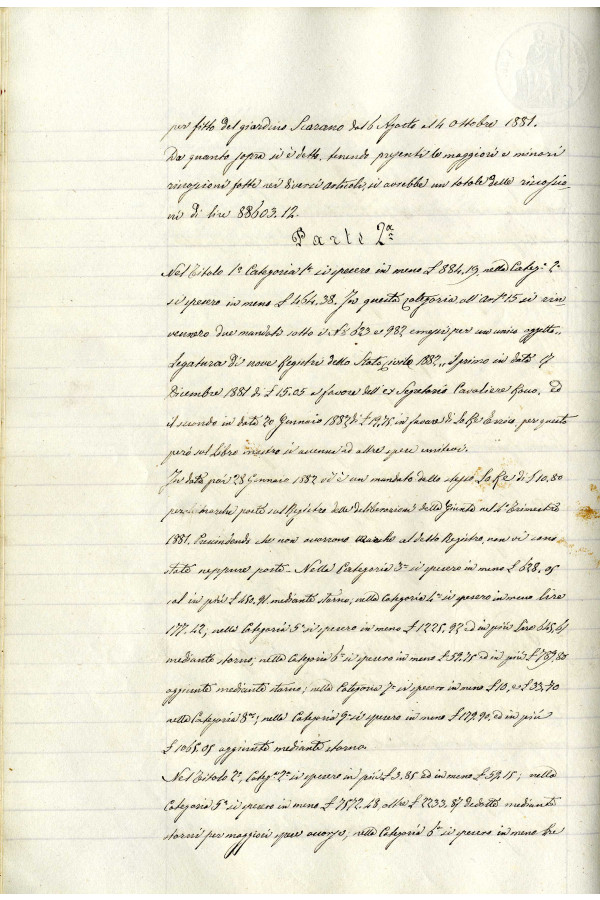 per fitto del giardino Scarano dal 6 Agosto al 4 Ottobre 1881.
Da quanto sopra si è detto, tenendo presenti le maggiori e minori
riscossioni fatte nei diversi articoli, si avrebbe un totale delle riscossio-
ni di lire 88603.12.
Parte 2ª
Nel Titolo 1º Categoria 1ª si spesero in meno £ 884,19, nella Categ.ª 2ª
si spesero in meno £ 464.38. In questa categoria all'art.º 15 si rin-
vennero due mandati sotto i Nⁱ 623 e 982 emessi per un unico oggetto,
Legatura di nove Registri dello Stato civile 1882,, il primo in data 17
Dicembre 1881 di £ 15.05 a favore dell'ex Segretario Cavaliere Rocco, ed
il secondo in data 20 Gennaio 1882 di £ 19.75 in favore di La Re Errico, per questo
però sul Libro mastro si accenna ad altre spese
In data poi 28 Gennaio 1882 vi è un mandato dello stesso La Re di £ 10.80
per marche poste sul Registro delle deliberazioni della Giunta nel 4º Trimestre
1881. Prescindendo che non occorrono marche al detto Registro, non vi sono
state neppure poste - Nella Categoria 3ª si spesero in meno £ 628.05
ed in più £ 450,91 mediante storno; nella Categoria 4ª si spesero in meno lire
177.42; nella Categoria 5ª si spesero in meno £ 1225,92 ed in più Lire 645,41
mediante storno; nella Categoria 6ª si spesero in meno £ 59.75 ed in più £ 789,80
aggiunte mediante storno; nella Categoria 7ª si spesero in meno £ 10, e £ 33,70
nella Categoria 8ª; nella Categoria 9ª si spesero in meno £ 179.90, ed in più
£ 1065.05 aggiunte mediante storno.
Nel Titolo 2º, Categ.ª 2ª si spesero in più £ 3.85 ed in meno £ 59.15; nella
Categoria 5ª si spesero in meno £ 7572.48, oltre £ 2233.87 dedotte mediante
storni per maggiori spese occorse; nella Categoria 6ª si spesero in meno lire